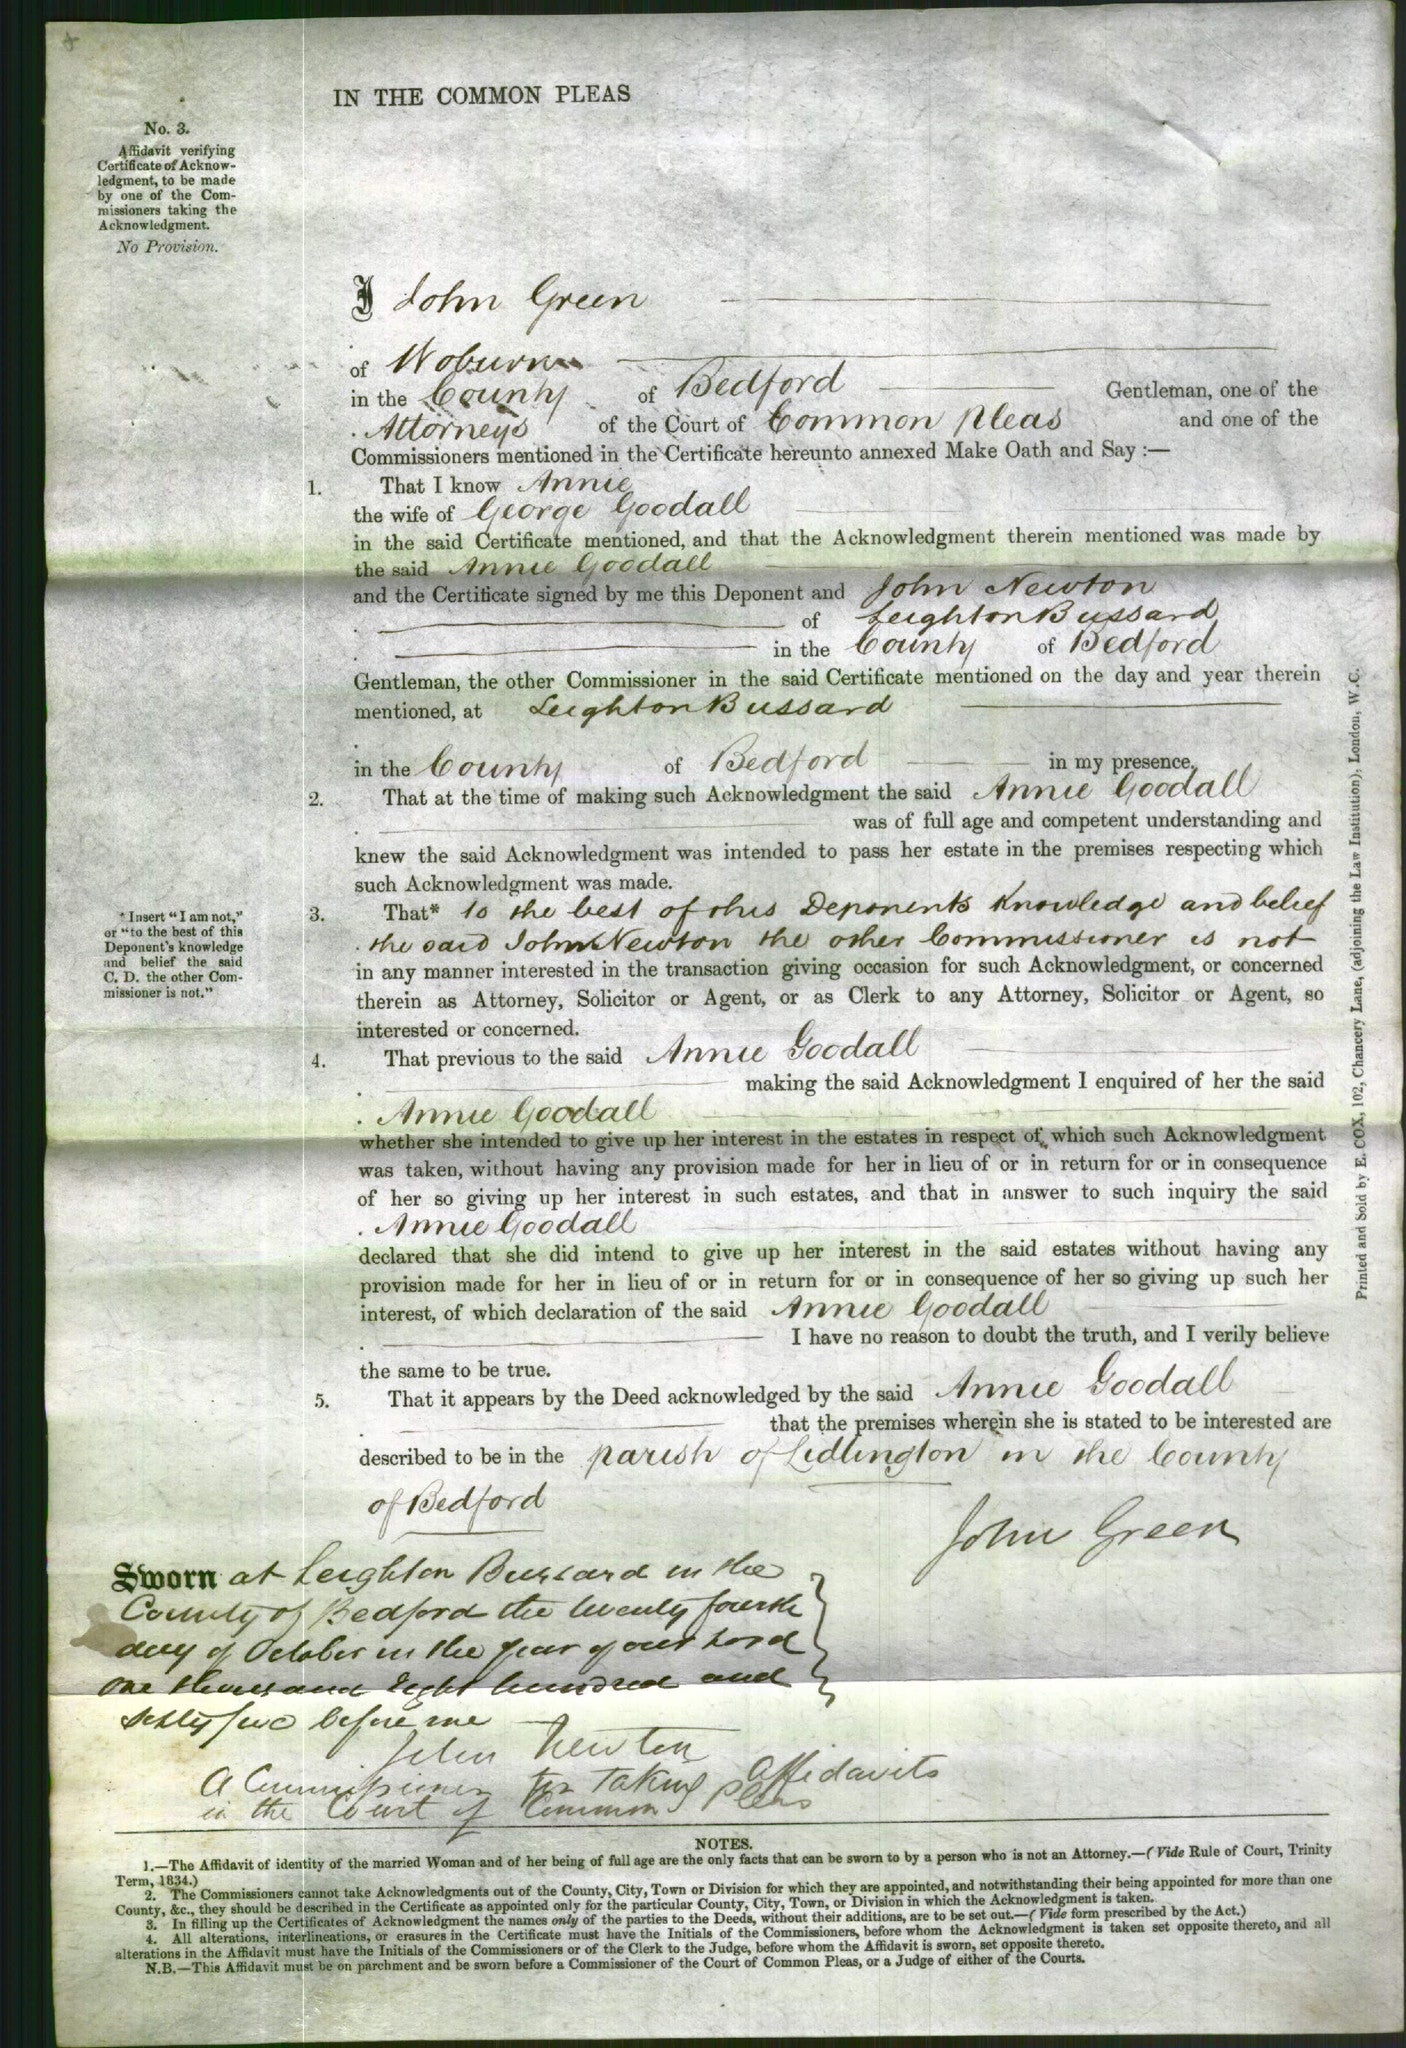 IN THE COMMON PLEAS
No. 3.
Affidavit verifying
Certificate of Acknow-
ledgment, to be made
by one of the Com-
missioners taking the
Acknowledgment.
No Provision.
I John Green
of Woburn
in the County of Bedford Gentleman, one of the
Attorneys of the Court of Common Pleas and one of the
Commissioners mentioned in the Certificate hereunto annexed Make Oath and Say :—
1. That I know Annie
the wife of George Goodall
in the said Certificate mentioned, and that the Acknowledgment therein mentioned was made by
the said Annie Goodall
and the Certificate signed by me this Deponent and John Newton
of Leighton Bussard
in the County of Bedford
Gentleman, the other Commissioner in the said Certificate mentioned on the day and year therein
mentioned, at Leighton Bussard
in the County of Bedford in my presence.
2. That at the time of making such Acknowledgment the said Annie Goodall
was of full age and competent understanding and
knew the said Acknowledgment was intended to pass her estate in the premises respecting which
such Acknowledgment was made.
* Insert "I am not,"
or "to the best of this
Deponent's knowledge
and belief the said
C. D. the other Com-
missioner is not."
3. That* to the best of this Deponents knowledge and belief
the said John Newton the other Commissioner is not
in any manner interested in the transaction giving occasion for such Acknowledgment, or concerned
therein as Attorney, Solicitor or Agent, or as Clerk to any Attorney, Solicitor or Agent, so
interested or concerned.
4. That previous to the said Annie Goodall
making the said Acknowledgment I enquired of her the said
Annie Goodall
whether she intended to give up her interest in the estates in respect of which such Acknowledgment
was taken, without having any provision made for her in lieu of or in return for or in consequence
of her so giving up her interest in such estates, and that in answer to such inquiry the said
Annie Goodall
declared that she did intend to give up her interest in the said estates without having any
provision made for her in lieu of or in return for or in consequence of her so giving up such her
interest, of which declaration of the said Annie Goodall
I have no reason to doubt the truth, and I verily believe
the same to be true.
5. That it appears by the Deed acknowledged by the said Annie Goodall
that the premises wherein she is stated to be interested are
described to be in the parish of Lidlington in the County
of Bedford
John Green
Sworn at Leighton Bussard in the
County of Bedford the twenty fourth
day of October in the year of our Lord
one thousand Eight hundred and
sixty two before me
John Newton
A Commissioner for taking Affidavits
in the Court of Common Pleas
Printed and Sold by E. COX, 102, Chancery Lane, (adjoining the Law Institution), London, W.C.
NOTES.
1.—The Affidavit of identity of the married Woman and of her being of full age are the only facts that can be sworn to by a person who is not an Attorney.—(Vide Rule of Court, Trinity
Term, 1834.)
2. The Commissioners cannot take Acknowledgments out of the County, City, Town or Division for which they are appointed, and notwithstanding their being appointed for more than one
County, &c., they should be described in the Certificate as appointed only for the particular County, City, Town, or Division in which the Acknowledgment is taken.
3. In filling up the Certificates of Acknowledgment the names only of the parties to the Deeds, without their additions, are to be set out.—(Vide form prescribed by the Act.)
4. All alterations, interlineations, or erasures in the Certificate must have the Initials of the Commissioners, before whom the Acknowledgment is taken set opposite thereto, and all
alterations in the Affidavit must have the Initials of the Commissioners or of the Clerk to the Judge, before whom the Affidavit is sworn, set opposite thereto.
N.B.—This Affidavit must be on parchment and be sworn before a Commissioner of the Court of Common Pleas, or a Judge of either of the Courts.